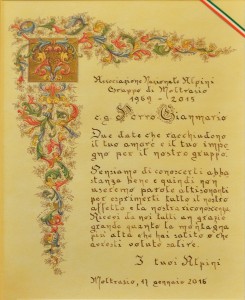 Associazione Nazionale Alpini
Gruppo di Moltrasio
1969 - 2015
c.g. Porro Gianmario
Due date che racchiudono
il tuo amore e il tuo impe
gno per il nostro gruppo.
Pensiamo di conoscerti abba
stanza bene e quindi non
useremo parole altisonanti
per esprimerti tutto il nostro
affetto e la nostra riconoscenza
Ricevi da noi tutti un grazie
grande quanto la montagna
più alta che hai salito o che
avresti voluto salire.
I tuoi Alpini
Moltrasio, 17 gennaio 2016